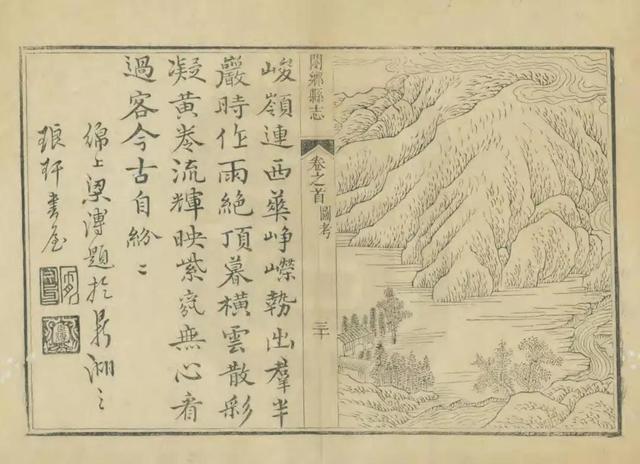 閿鄉縣志
卷之首 圖考
三十
峻嶺連西華崢嶸勢出羣半
巖時作雨絕頂暮橫雲散彩
凝黃卷流輝映紫氣無心看
過客今古自紛〻
綿上梁溥題於鼎湖之
琅玕書屋